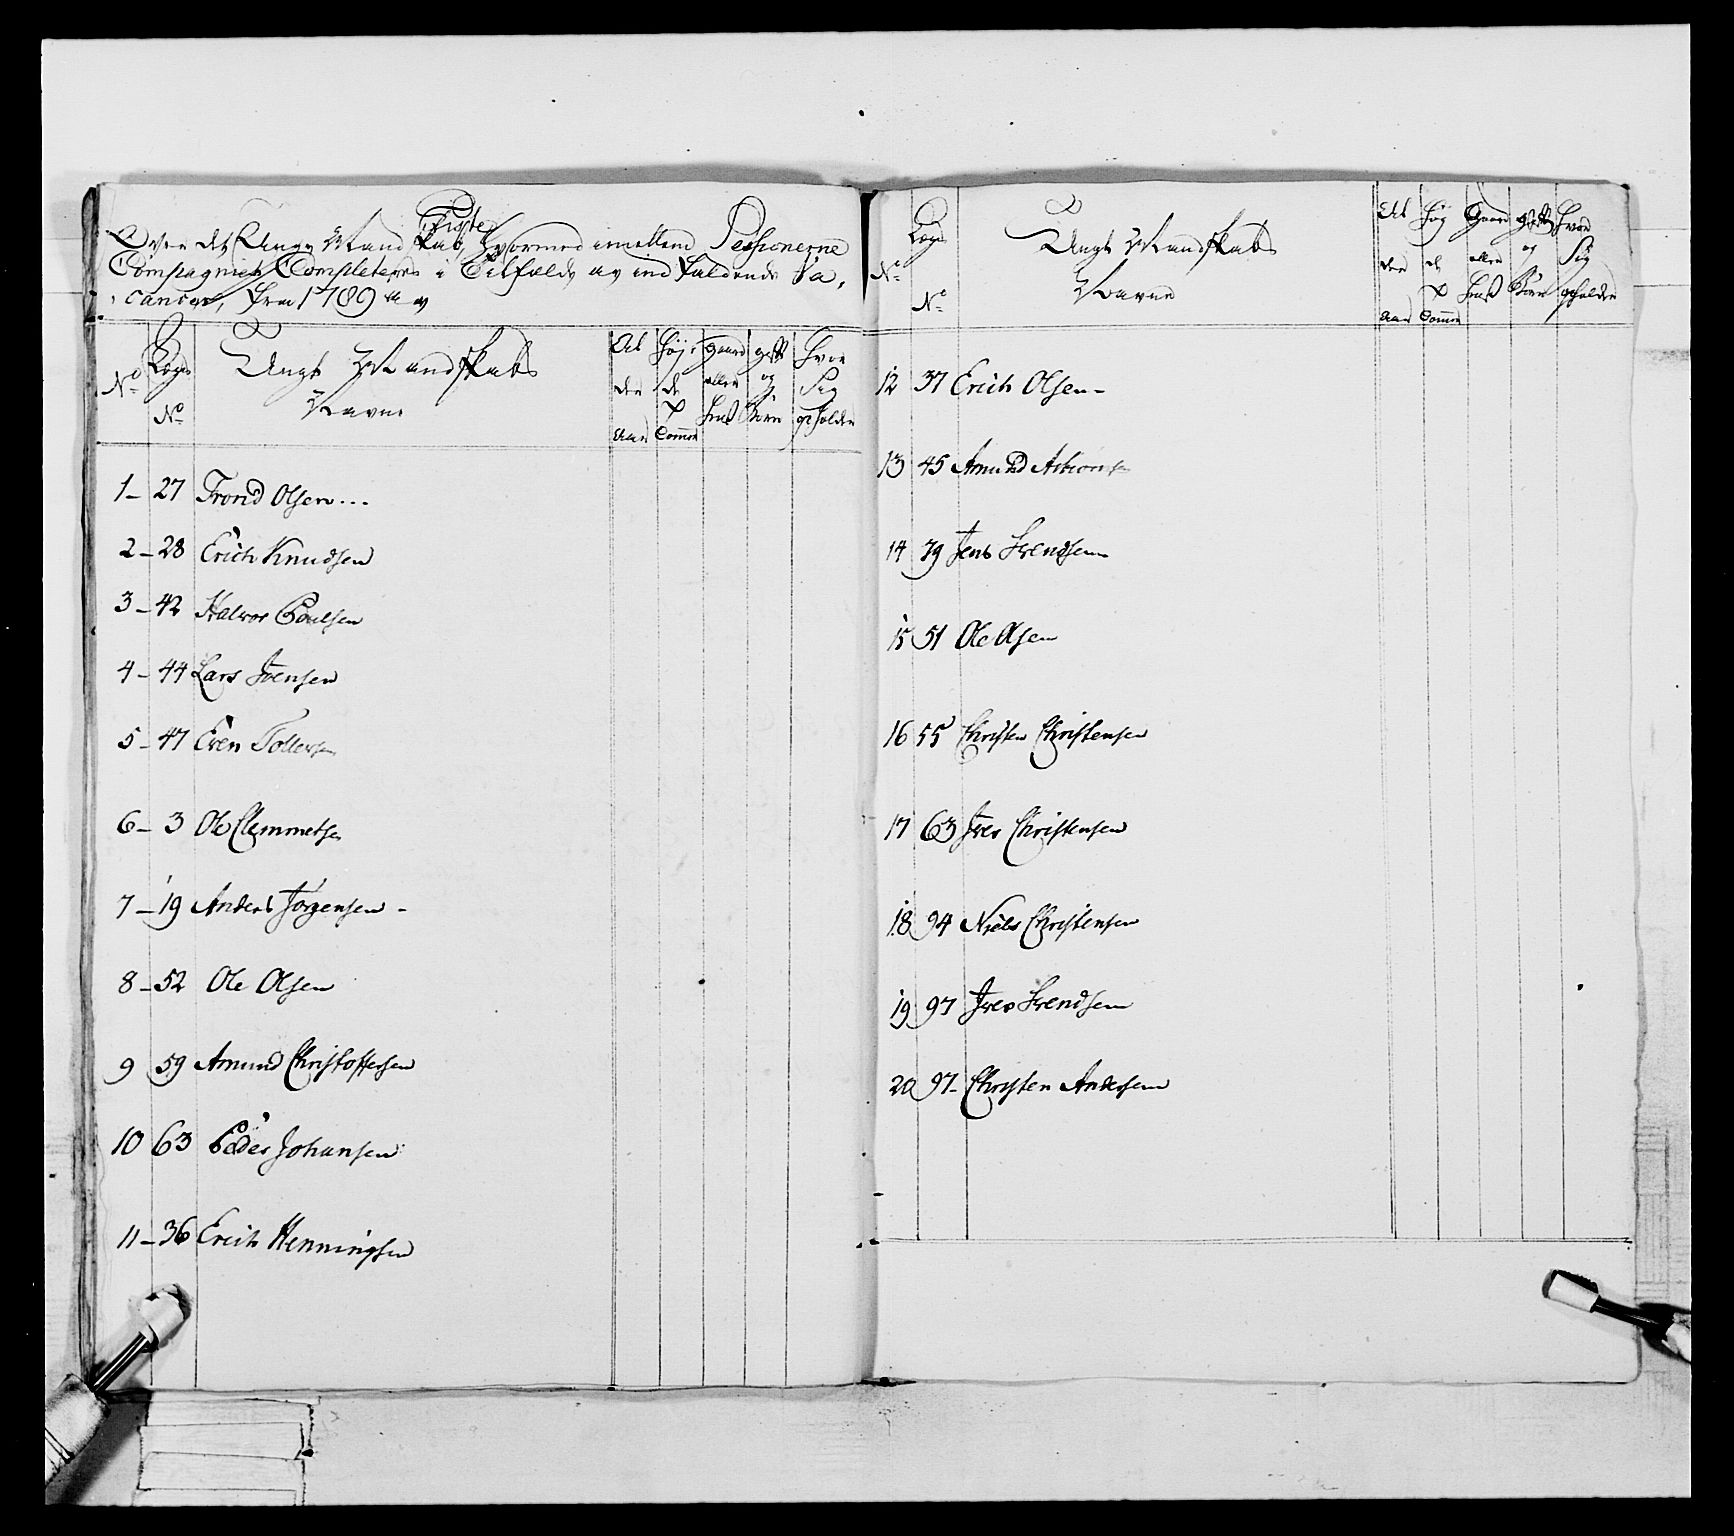 Liste
Over det Unge Mandskab, Hvormed imellem Sessionerne
Compagniet Completeres i Tilfælde av indfaldende Va,
cancer, fra 1789 til
No Lægs No Ungt Mandskabs Navne Al der Aar Høj de Tomme Gaard eller Huus gift og Børn Hvor Sig opholder
1 27 Trond Olsen
2 28 Erich Knudsen
3 42 Halvor Poulsen
4 44 Lars Ivensen
5 47 Even Tollevsen
6 3 Ole Clemmetsen
7 19 Anders Jörgensen
8 52 Ole Olsen
9 59 Amund Christoffersen
10 63 Peder Johansen
11 36 Erich Henningsen
No Lægs No Ungt Mandskabs Navne Al der Aar Høj de Tomme Gaard eller Huus gift og Børn Hvor Sig opholder
12 37 Erich Olsen
13 45 Amund
14 79 Jens Svendsen
15 51 Ole Olsen
16 55 Christen Christensen
17 63 Iver Christensen
18 94 Niels Christensen
19 97 Iver Svendsen
20 97 Christen Andersen